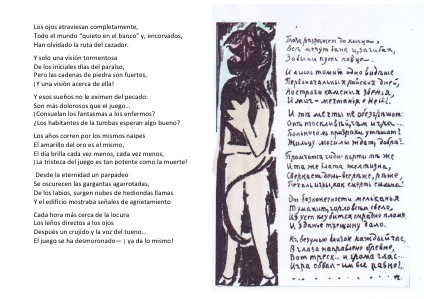 Los ojos atraviesan completamente,
Todo el mundo “quieto en el banco” y, encorvados,
Han olvidado la ruta del cazador.
Y solo una visión tormentosa
De los iniciales días del paraíso,
Pero las cadenas de piedra son fuertes,
¡Y una visión acerca de ella!
Y esos sueños no le eximen del pecado:
Son más dolorosos que el juego…
¿Consuelan los fantasmas a los enfermos?
¿Los habitantes de la tumbas esperan algo bueno?
Los años corren por los mismos naipes
El amarillo del oro es el mismo,
El día brilla cada vez menos, cada vez menos,
¡La tristeza del juego es tan potente como la muerte!
Desde la eternidad un parpadeo
Se oscurecen las gargantas agarrotadas,
De los labios, surgen nubes de hediondas llamas
Y el edificio mostraba señales de agrietamiento
Cada hora más cerca de la locura
Los leños directos a los ojos
Después un crujido y la voz del tueno…
El juego se ha desmoronado— ¡ ya da lo mismo!
Глаза
до конца,
Все мечут банк и,
Забыли путь ловца.
И лишь томит одно виденье
Первоначальных райских дней,
Но строги каменья звенья,
И миг - мечтанья о ней!
И те мечты не обезгрешат:
Они тоскливей, чем игра...
Больного ль призраки утешат?
Жильцу могилы ждать добра?
Промчатся годы - карты те же
И та же злата желтизна,
Сверкает день - все реже, реже,
Печаль игры, как смерть сильна!
От бесконечности мельканья
Туманит, горло всем свело,
Из уст клубится смрадно пламя
И зданье трещину дало.
К безумью близок каждый час,
В глаза направлено бревно,
Вот треск... и грома глас...
Игра обвал - им все равно!..